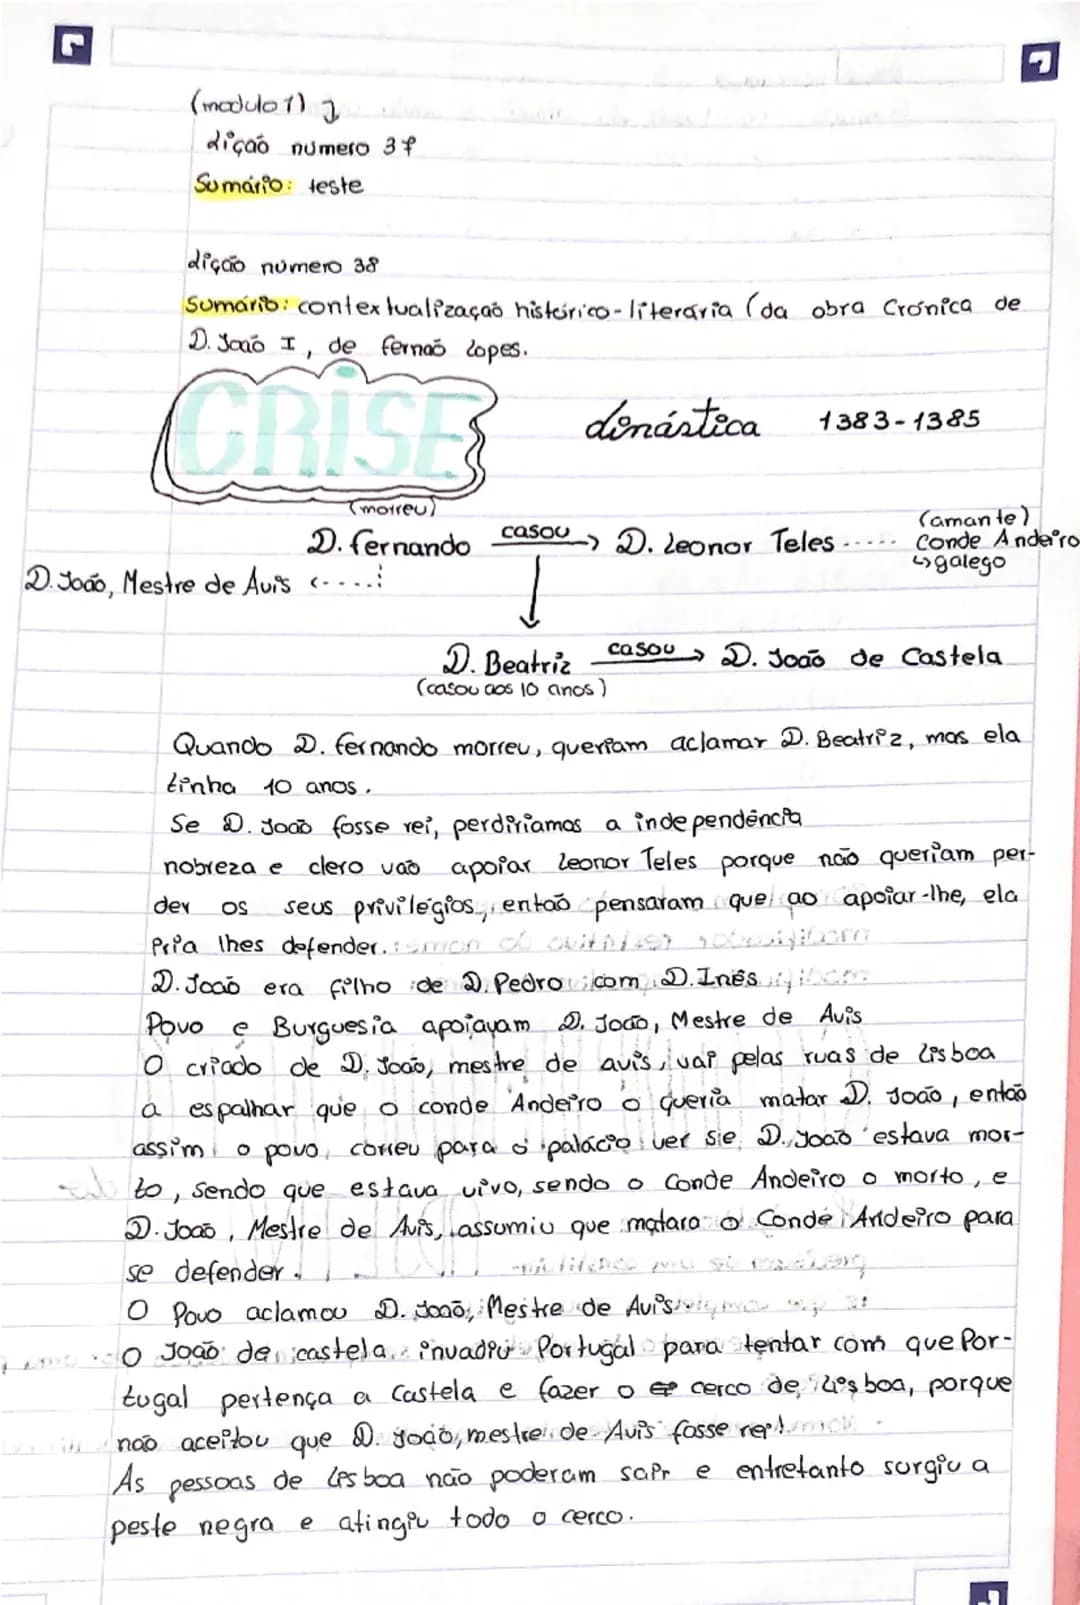 (modulo 1)
Lição numero 37
Sumário: teste
Lição numero 38
Sumário: contextualização histórico-literária (da obra Crónica de
D. João I, de fernão Lopes.
CRISE dinástica 1383-1385
(morreu)
D. fernando casou D. Leonor Teles ..... (amante) Conde Andeiro
↳galego
D. João, Mestre de Avis
D. Beatriz casou D. João de Castela
(casou aos 10 anos)
Quando D. fernando morreu, queriam aclamar D. Beatriz, mas ela
tinha 10 anos.
Se D. João fosse rei, perdiriamos a independência
nobreza e clero vão apoiar Leonor Teles porque não queriam per-
der os seus privilégios, então pensaram que ao apoiar-lhe, ela
iria lhes defender.
D. João era filho de D. Pedro com D. Inês
Povo e Burguesia apoiavam D. João, Mestre de Avis
O criado de D. João, mestre de avis, vai pelas ruas de Lisboa
a espalhar que o conde Andeiro o queria matar D. João, então
assim o povo, correu para o palácio ver se D. João estava mor-
to, sendo que estava vivo, sendo o Conde Andeiro o morto, e
D. João, Mestre de Avis, assumiu que matara o Conde Andeiro para
se defender.
O Povo aclamou D. João, Mestre de Avis
O João de castela invadiu Portugal para tentar com que Por-
tugal pertença a Castela e fazer o cerco de Lisboa, porque
não aceitou que D. joão, mestre de Avis fosse rei.
As pessoas de Lisboa não poderam sair e entretanto surgiu a
peste negra e atingiu todo o cerco.